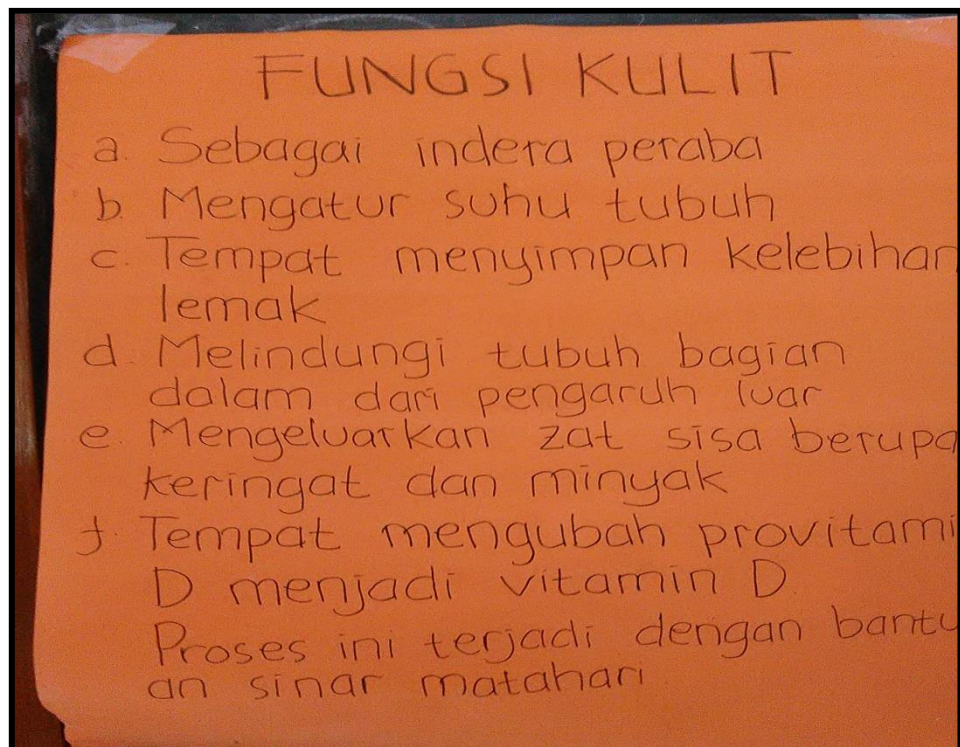 FUNGSI KULIT
a. Sebagai indera peraba
b. Mengatur suhu tubuh
c. Tempat menyimpan kelebihan
lemak
d. Melindungi tubuh bagian
dalam dari pengaruh luar
e. Mengeluarkan zat sisa berupa
keringat dan minyak
f. Tempat mengubah provitami
D menjadi vitamin D.
Proses ini terjadi dengan bantu
an sinar matahari